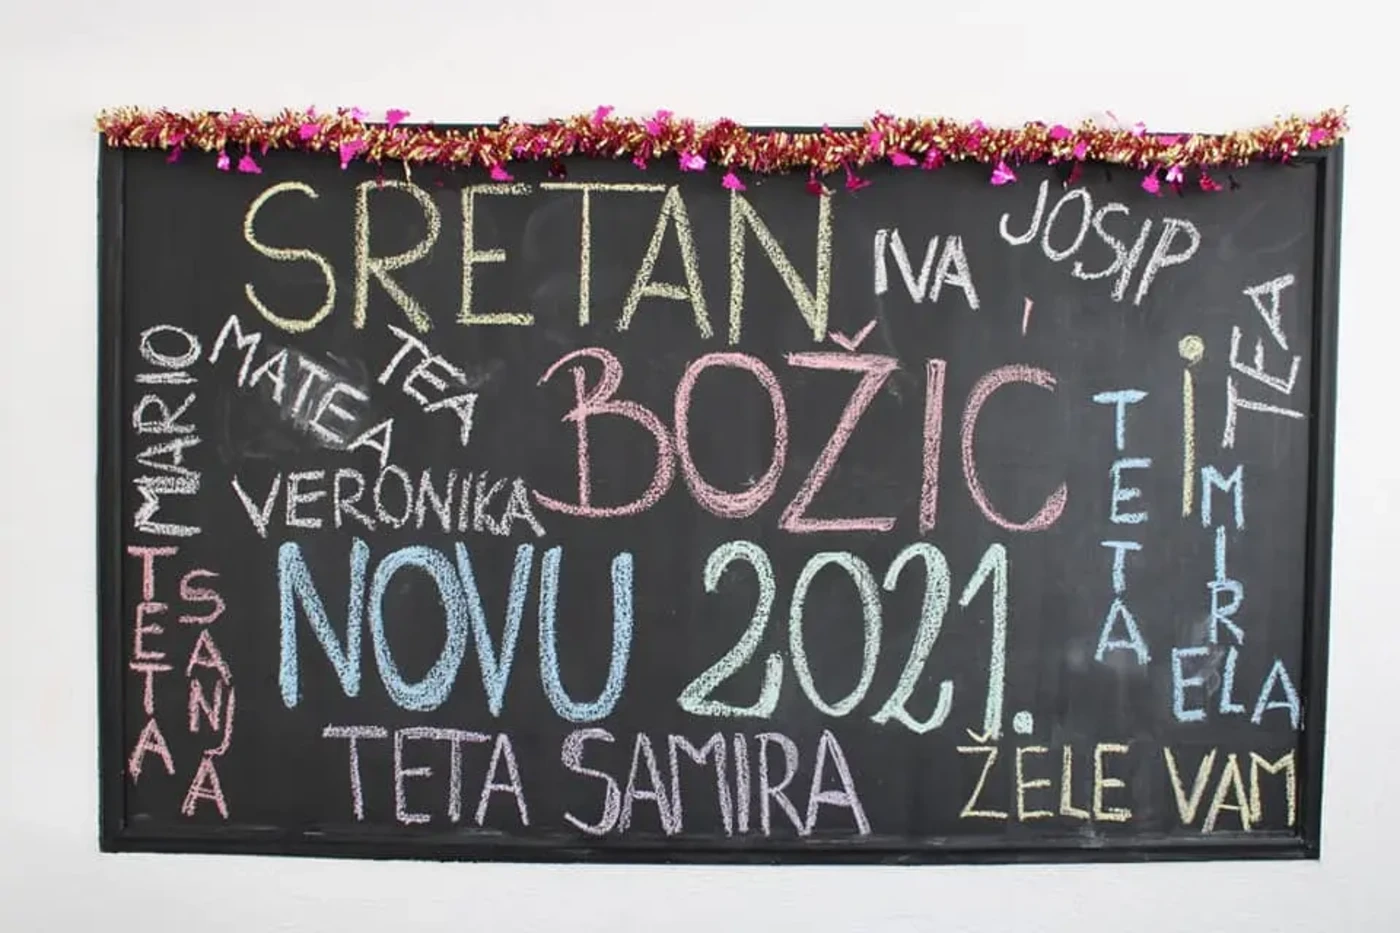 SRETAN
IVA
JOSIP
TEA
MARIO
MATEA
TEA
VERONIKA
BOŽIĆ
i
NOVU 2021.
TETA
SANJA
TETA
MIRELA
TETA SAMIRA
ŽELE VAM